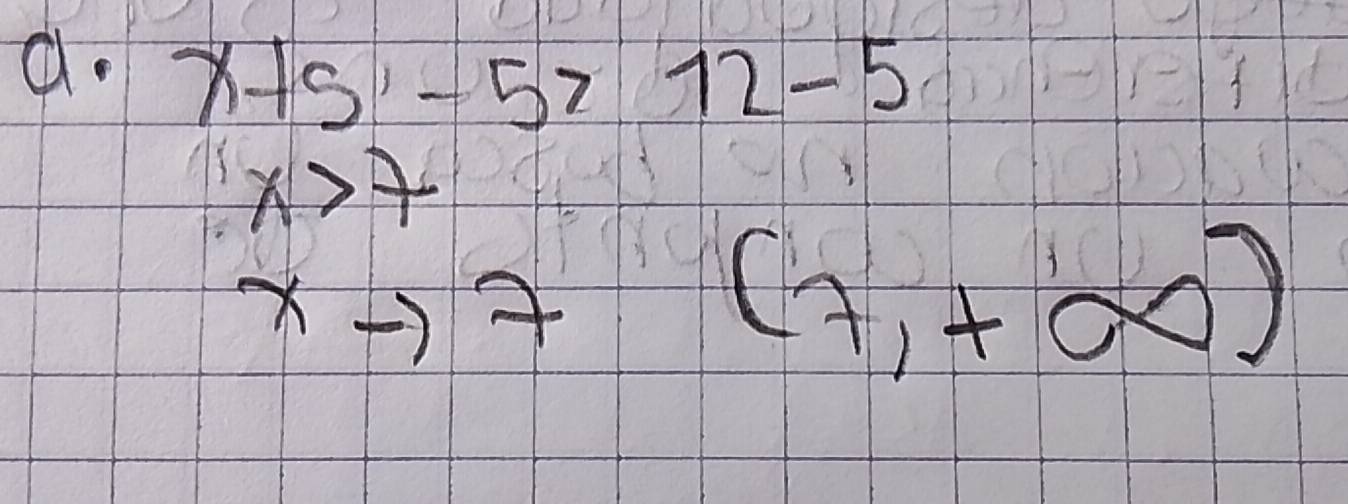 a. x+5 - 5 > 12 - 5
x > 7
x → 7 (7, + ∞)